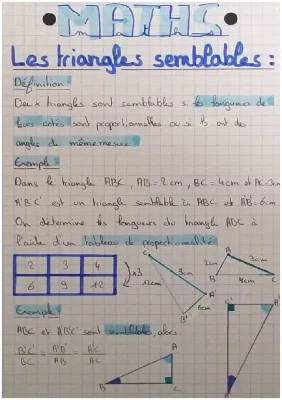 MATHS
Les triangles semblables :
Définition :
Deux triangles sont semblables si les longueurs de
leurs cotés sont proportionnelles ou si ils ont des
angles de même mesure.
Exemple :
Dans le triangle ABC, AB=2cm, BC=4cm et AC=3cm
A'B'C' est un triangle semblable à ABC et A'B'=6cm
On détermine les longueurs du triangle ABC à
l'aide d'un tableau de proportionnalité
2 3 4
6 9 12
x3
C'
9cm
12cm
A'
B'
6cm
B
2cm
A
3cm
4cm
C
Exemple :
ABC et A'B'C' sont semblables, alors
B'C'/BC = A'B'/AB = A'C'/AC
A
B
C
C'
A'
B'